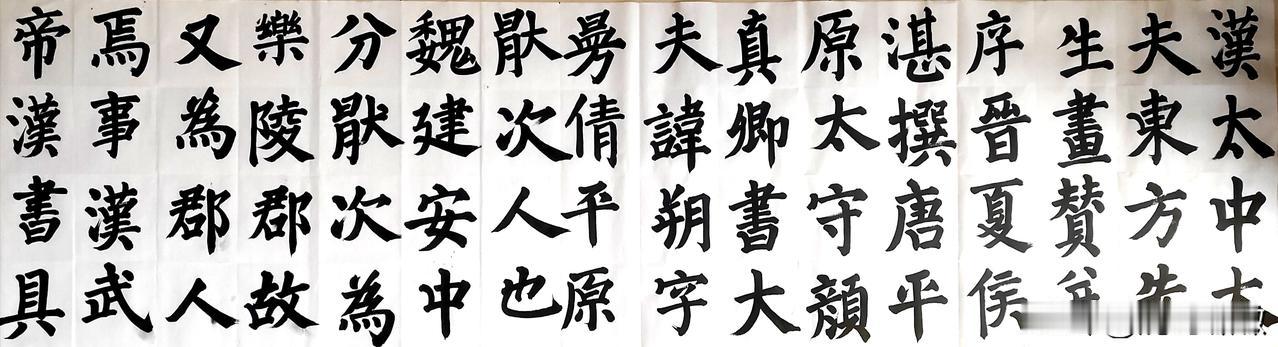 漢太中大
夫東方先
生畫賛并
序晉夏侯
湛撰唐平
原太守顏
真卿書大
夫諱朔字
曼倩平原
猒次人也
魏建安中
分猒次為
樂陵郡故
又為郡人
焉事漢武
帝漢書具